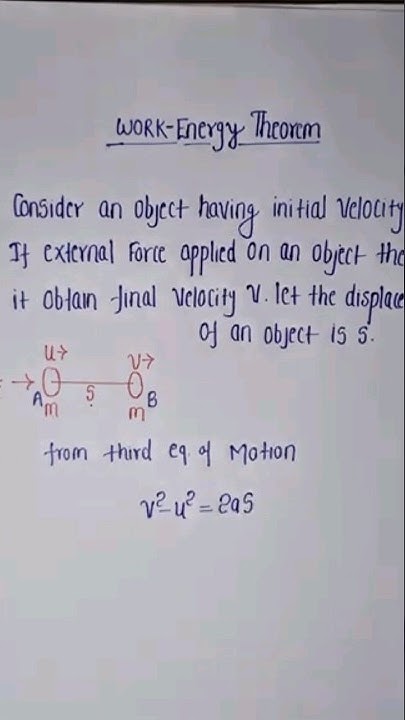 WORK-Energy Theorem
Consider an object having initial velocity
If external Force applied on an object the
it obtain final velocity V. let the displace
of an object is S.
u→ V→
→ S
A m m B
from third eq. of Motion
v²-u² = 2as